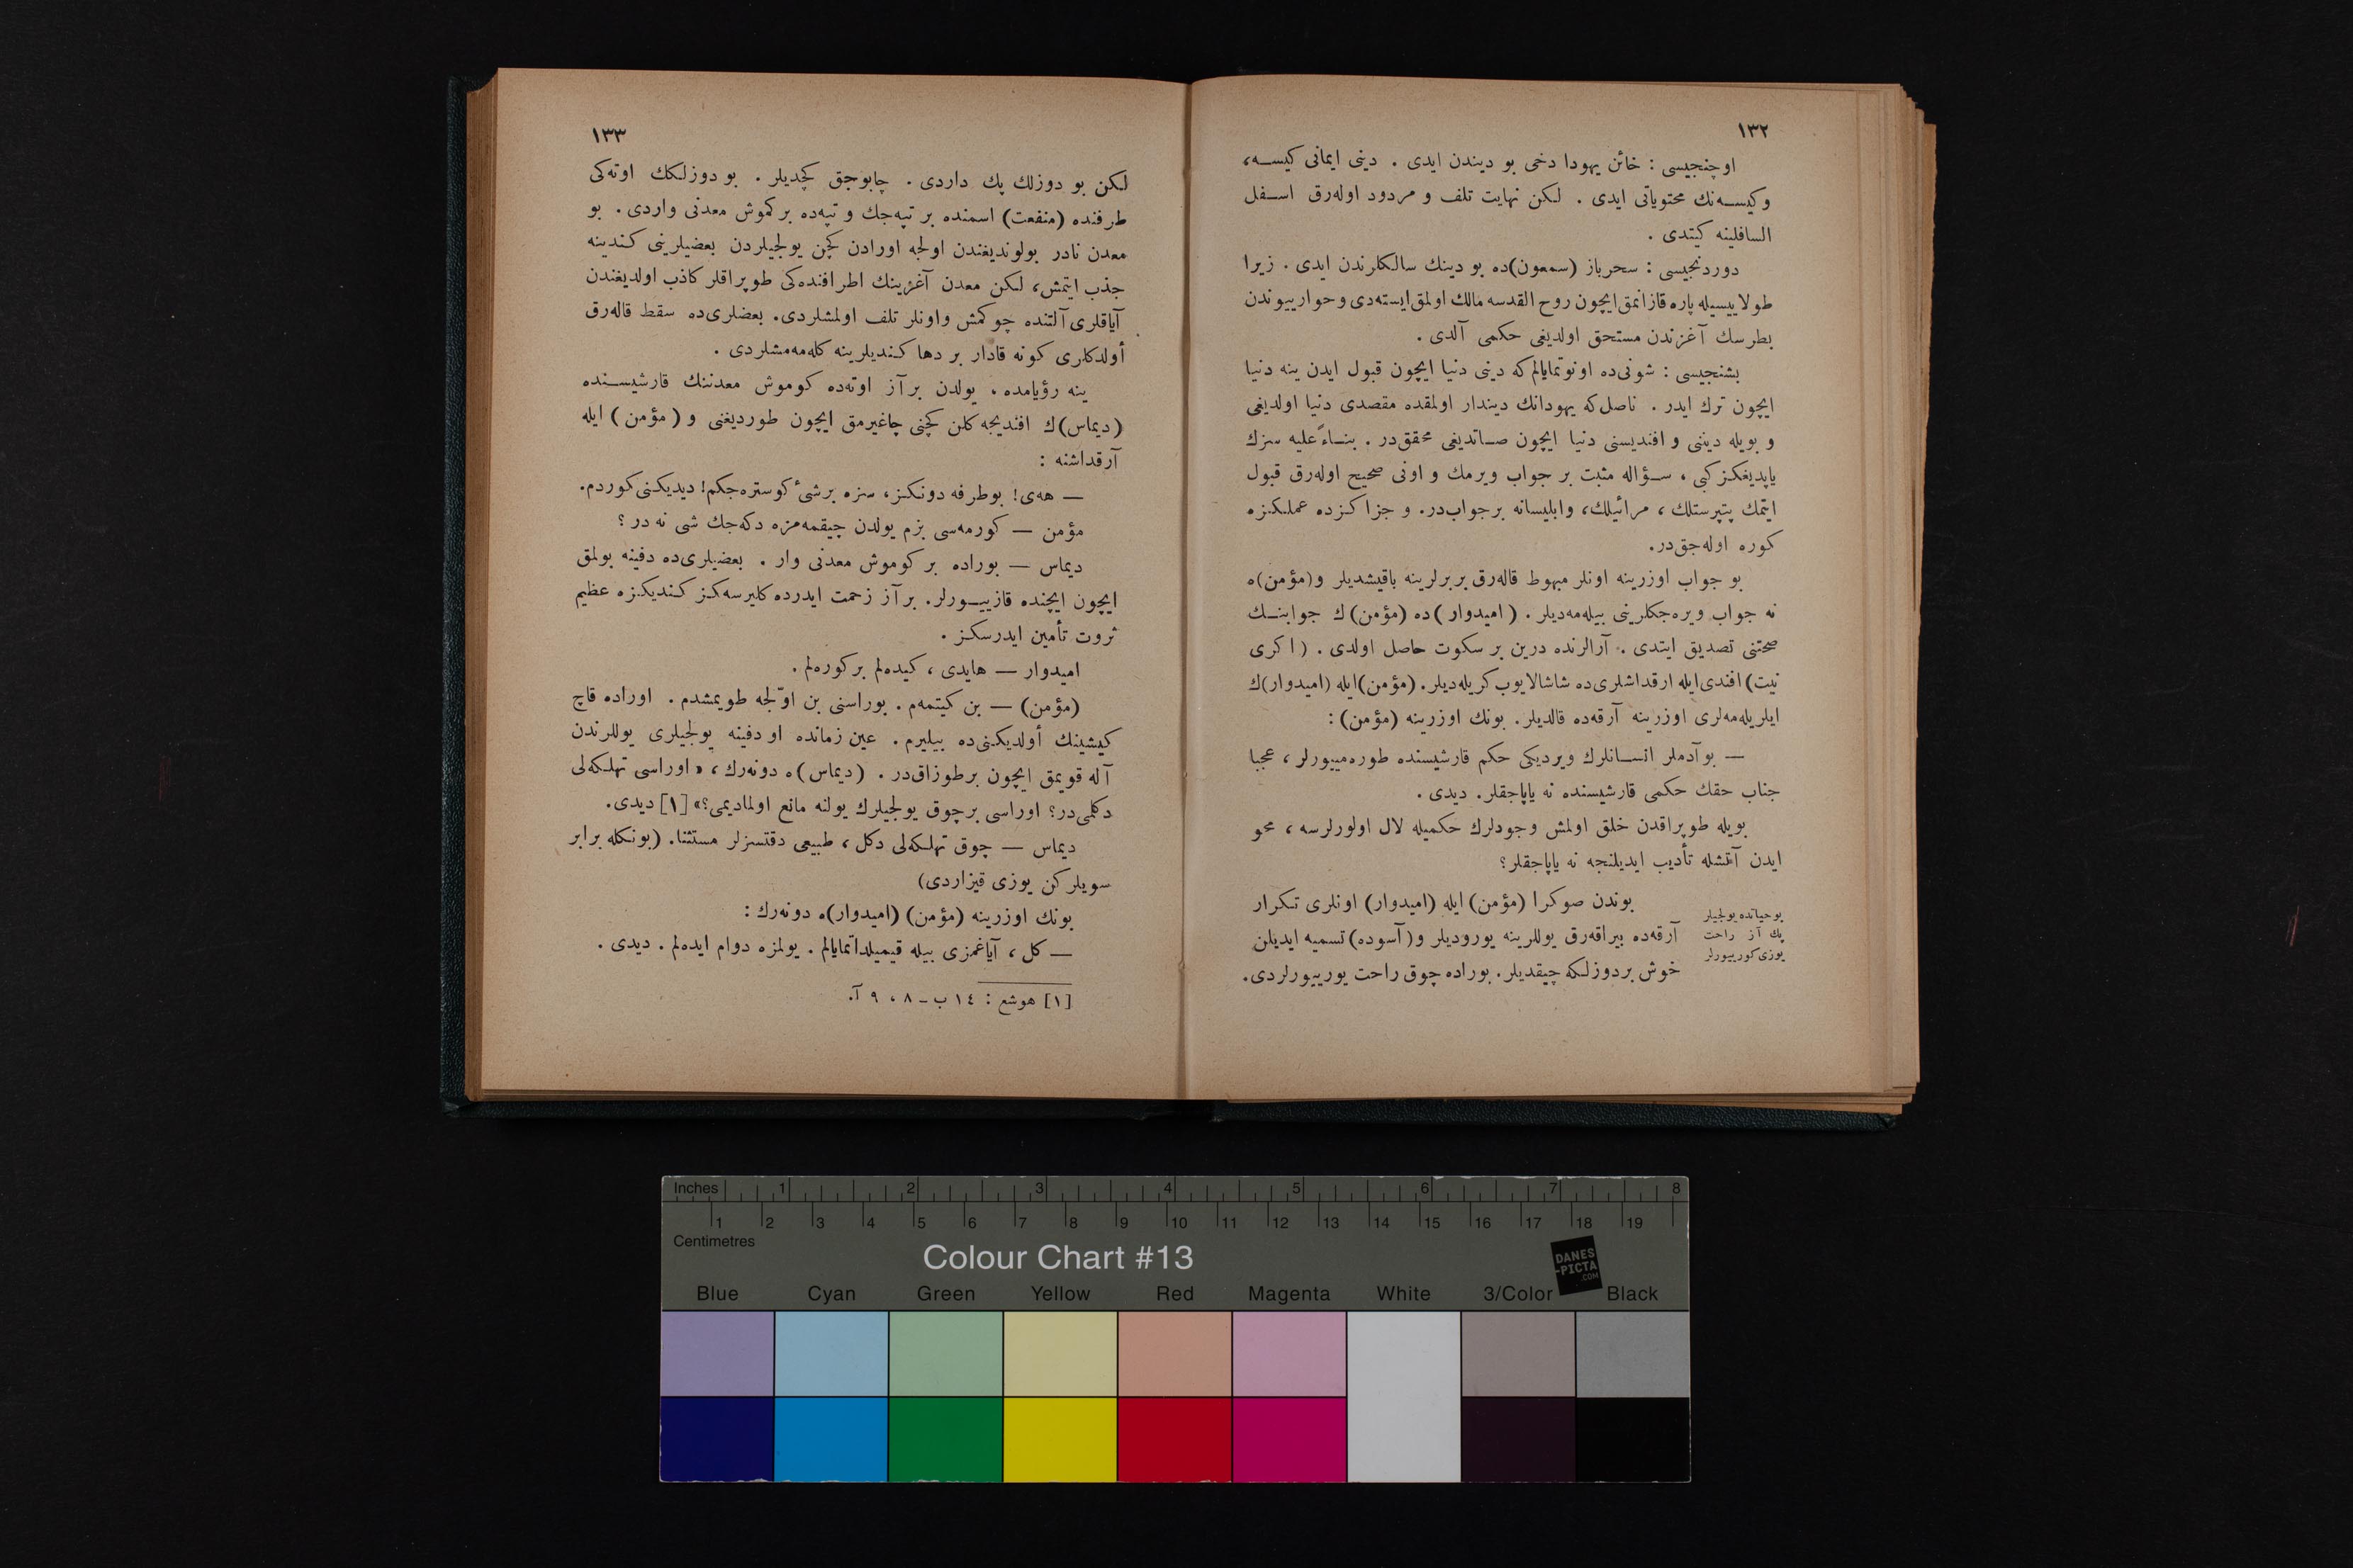 ١٣٢
اوچنجیسی : خائن یهودا دخی بو دیندن ایدی . دینی ایمانی کیسـه،
وکیسـه‌نك محتویاتی ایدی . لکن نهایت تلف و مردود اوله‌رق اسـفل
السافلینه کیتدی .
دوردنجیسی : سحرباز (سمعون)ده بو دینك سالکلرندن ایدی . زیرا
طولاییسیله پاره قازانمق ایچون روح القدسه مالك اولمق ایسته‌دی و حوارییوندن
بطرسك آغزندن مستحق اولدیغی حکمی آلدی .
بشنجیسی : شونی‌ده اونوتمایالم که دینی دنیا ایچون قبول ایدن ینه دنیا
ایچون ترك ایدر . ناصل که یهودانك دیندار اولمقده مقصدی دنیا اولدیغی
و بویله دیننی و افندیسنی دنیا ایچون صـاتدیغی محقق‌در . بنـاءً علیه سزك
یاپدیغکز کبی ، سـؤاله مثبت بر جواب ویرمك و اونی صحیح اوله‌رق قبول
ایتمك پتپرستلك ، مرائیلك، وابلیسانه برجواب‌در. و جزاکزده عملکزه
کوره اوله‌جق‌در.
بو جواب اوزرینه اونلر مبهوط قاله‌رق بربرلرینه باقیشدیلر و(مؤمن)ه
نه جواب ویره‌جکلرینی بیله‌مه‌دیلر . (امیدوار)ده (مؤمن)ك جوابنـك
صحتنی تصدیق ایتدی . آرالرنده درین بر سکوت حاصل اولدی . (اکری
نیت) افندی‌ایله ارقداشلری‌ده شاشالایوب کریله‌دیلر. (مؤمن)ایله (امیدوار)ك
ایلریله‌مه‌لری اوزرینه آرقه‌ده قالدیلر. بونك اوزرینه (مؤمن) :
— بوآدملر انسـانلرك ویردیکی حکم قارشیسنده طوره‌مییورلر ، عجبا
جناب حقك حکمی قارشیسنده نه یاپاجقلر. دیدی .
بویله طوپراقدن خلق اولمش وجودلرك حکمیله لال اولورلرسه ، محو
ایدن آتشله تأدیب ایدیلنجه نه یاپاجقلر؟
بوندن صوکرا (مؤمن) ایله (امیدوار) اونلری تکرار
آرقه‌ده بیراقه‌رق یوللرینه یورودیلر و(آسوده) تسمیه ایدیلن
خوش بردوزلکه چیقدیلر. بوراده چوق راحت یورییورلردی.
بوحیاتده یولجیلر
پك آز راحت
یوزی کورییورلر
١٣٣
لکن بو دوزلك پك داردی . چابوجق کچدیلر . بو دوزلکك اوته‌کی
طرفنده (منفعت) اسمنده بر تپه‌جك و تپه‌ده برکموش معدنی واردی . بو
معدن نادر بولوندیغندن اولجه اورادن کچن یولجیلردن بعضیلرینی کندینه
جذب ایتمش، لکن معدن آغزینك اطرافنده‌کی طوپراقلر کاذب اولدیغندن
آیاقلری آلتنده چوکمش واونلر تلف اولمشلردی. بعضلری‌ده سقط قاله‌رق
أولدکلری کونه قادار بر دها کندیلرینه کله‌مه‌مشلردی .
ینه رؤیامده ، یولدن برآز اوته‌ده کوموش معدننك قارشیسـنده
(دیماس)ك افندیجه کلن کچنی چاغیرمق ایچون طوردیغنی و (مؤمن) ایله
آرقداشنه :
— هه‌ی! بوطرفه دونکز، سزه برشیٔ کوستره‌جکم! دیدیکنی کوردم.
مؤمن — کورمه‌سی بزم یولدن چیقمه‌مزه دکه‌جك شی نه در ؟
دیماس — بوراده بر کوموش معدنی وار . بعضیلری‌ده دفینه بولمق
ایچون ایچنده قازییـورلر. برآز زحمت ایدرده کلیرسه‌کز کندیکزه عظیم
ثروت تأمین ایدرسکز .
امیدوار — هایدی ، کیده‌لم برکوره‌لم .
(مؤمن) — بن کیتمه‌م . بوراسنی بن اوّلجه طویمشدم . اوراده قاچ
کیشینك أولدیکنی‌ده بیلیرم . عین زمانده او دفینه یولجیلری یوللرندن
آله قویمق ایچون برطوزاق‌در . (دیماس)ه دونه‌رك ، « اوراسی تهلکه‌لی
دکلمی‌در؟ اوراسی برچوق یولجیلرك یولنه مانع اولمادیمی؟» [١] دیدی.
دیماس — چوق تهلکه‌لی دکل ، طبیعی دقتسزلر مستثنا. (بونکله برابر
سویلرکن یوزی قیزاردی)
بونك اوزرینه (مؤمن) (امیدوار)ه دونه‌رك :
— کل ، آیاغمزی بیله قیمیلداتمایالم . یولمزه دوام ایده‌لم . دیدی .
[١] هوشع : ١٤ ب ـ ٨ ، ٩ آ.
Inches 1 2 3 4 5 6 7 8
1 2 3 4 5 6 7 8 9 10 11 12 13 14 15 16 17 18 19
Centimetres
Colour Chart #13
DANES
-PICTA
.COM
Blue Cyan Green Yellow Red Magenta White 3/Color Black